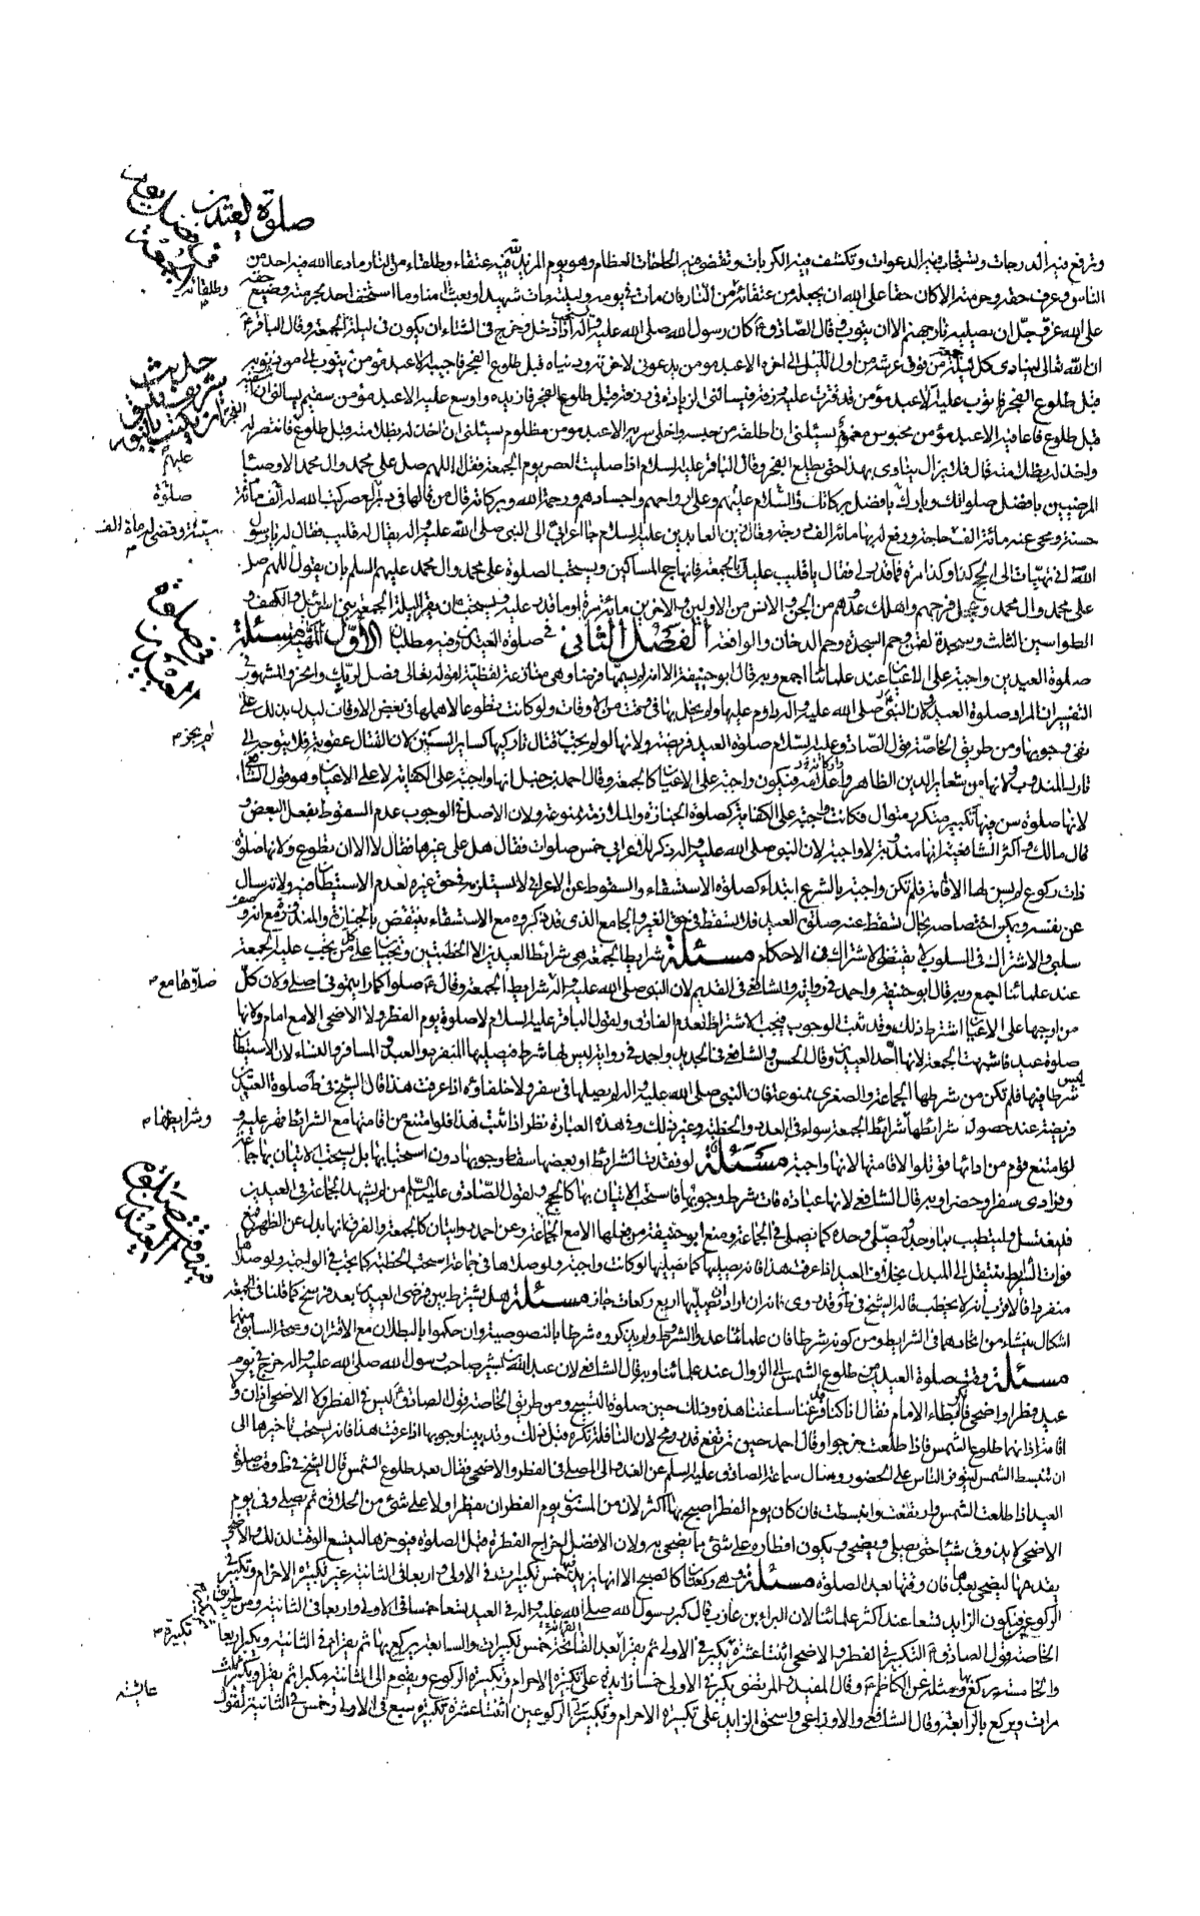 صلوة العيدين
ويرفع فيه الدرجات ويستجاب فيه الدعوات ويكشف فيه الكربات ويقضى فيه الحاجات العظام وهو يوم المزيد لله فيه عتقاء وطلقاء من النار ما دعا الله فيه احد من
الناس وعرف حقه وحرمته الا كان حقا على الله ان يجعله من عتقائه من النار فان مات فى يومه وليلته مات شهيدا وبعث امنا وما استخف احد بحرمته وضيع حقه الا كان
على الله عز وجل ان يصليه نار جهنم الا ان يتوب وقال الصادق ع كان رسول الله صلى الله عليه واله اذا دخل وخرج فى الشتاء ان يكون فى ليلة الجمعة وقال الباقر ع
ان الله تعالى لينادى كل ليلة جمعة من فوق عرشه من اول الليل الى اخره الا عبد مؤمن يدعونى لاخرته ودنياه قبل طلوع الفجر فاجيبه الا عبد مؤمن يتوب الى من ذنوبه
قبل طلوع الفجر فاتوب عليه الا عبد مؤمن قد قترت عليه رزقه فيسالنى الزيادة فى رزقه قبل طلوع الفجر فازيده واوسع عليه الا عبد مؤمن سقيم يسالنى ان اشفيه
قبل طلوع فاعافيه الا عبد مؤمن محبوس مغموم يسئلنى ان اطلقه من حبسه واخلى سربه الا عبد مؤمن مظلوم يسئلنى ان اخذ له بظلامته قبل طلوع فانتصر له
واخذ له بظلامته قال فلا يزال ينادى بهذا حتى يطلع الفجر وقال الباقر عليه السلام اذا صليت العصر يوم الجمعة فقل اللهم صل على محمد وال محمد الاوصياء
المرضيين بافضل صلواتك وبارك بافضل بركاتك والسلام عليهم وعلى ارواحهم واجسادهم ورحمة الله وبركاته قال من قالها فى دبر العصر كتب الله له مائة الف
حسنة ومحى عنه مائة الف وقضى له مائة الف حاجة ورفع له بها مائة الف درجة وقال زين العابدين عليه السلام جاء اعرابى الى النبى صلى الله عليه واله يقال له قليب فقال له يا رسول
الله انى تهيات الى الحج كذا وكذا مرة فما قدر لى فقال يا قليب عليك بالجمعة فانها حج المساكين ويستحب الصلوة على محمد وال محمد عليهم السلم بان يقول اللهم صل
على محمد وال محمد وعجل فرجهم واهلك عدوهم من الجن والانس من الاولين والاخرين مائة مرة او ما قدر عليه ويستحب ان يقرا ليلة الجمعة بنى اسرائيل والكهف و
الطواسين الثلث وسجدة لقمن وحم السجدة وحم الدخان والواقعة الفصل الثانى فى صلوة العيدين وفيه مطلبان الاول الماهية مسئلة
صلوة العيدين واجبة على الاعيان عند علمائنا اجمع وبه قال ابو حنيفة الا انه لم يسمها فرضا وهى منازعة لفظية لقوله تعالى فصل لربك وانحر والمشهور فى
التفسير ان المراد صلوة العيد وكان النبى صلى الله عليه واله يداوم عليها ولم يخل بها فى وقت من الاوقات ولو كانت تطوعا لاهملها فى بعض الاوقات ليدل بذلك على
نفى وجوبها ومن طريق الخاصة قول الصادق عليه السلام صلوة العيد فريضة ولانها لو لم يجب لم يجز قتال تاركيها كساير السنن لان القتال عقوبة فلا يتوجه الى
تارك المندوب ولانها من شعاير الدين الظاهرة واعلامه فيكون واجبة على الاعيان كالجمعة وقال احمد بن حنبل انها واجبة على الكفاية لا على الاعيان وهو قول للشافعى
لانها صلوة سن فيها تكبير متكرر متوال فكانت واجبة على الكفاية كصلوة الجنازة والملازمة ممنوعة ولان الاصل فى الوجوب عدم السقوط بفعل البعض و
قال مالك واكثر الشافعية انها مندوبة لا واجبة لان النبى صلى الله عليه واله ذكر للاعرابى خمس صلوات فقال هل على غيرها فقال لا الا ان تطوع ولانها صلوة
ذات ركوع لم يسن لها الاقامة فلم تكن واجبة بالشرع ابتداء كصلوة الاستسقاء والسقوط عن الاعرابى لا يستلزمه فى حق غيره لعدم الاستيطان فيه ولانه سال
سلبى والاشتراك فى السلوب لا يقتضى الاشتراك فى الاحكام مسئلة شرايط الجمعة هى شرايط العيدين الا الخطبتين وتجب على كل من يجب عليه الجمعة
عند علمائنا اجمع وبه قال ابو حنيفة واحمد فى رواية والشافعى فى القديم لان النبى صلى الله عليه واله صلاها مع شرايط الجمعة وقال ع صلوا كما رايتمونى اصلى ولان كل
من اوجبها على الاعيان اشترط ذلك وقد ثبت الوجوب فيجب الاشتراط لعدم الفارق ولقول الباقر عليه السلام لا صلوة يوم الفطر ولا الاضحى الا مع امام ولانها
صلوة عيد فاشبهت الجمعة لانها احد العيدين وقال الحسن والشافعى فى الجديد واحمد فى رواية ليس لها شرط فيصليها المنفرد والعبد والمسافر والنساء لان الاستيطان ليس
شرطا فيها فلم تكن من شرطها الجماعة والصغرى ممنوعة فان النبى صلى الله عليه واله لم يصلها فى سفر ولا خلفاؤه اذا عرفت هذا قال الشيخ فى ط صلوة العيدين
فريضة عند حصول شرائطها وشرايطها شرائط الجمعة سواء فى العدد والخطبة وغير ذلك وفى هذه العبارة نظر اذا ثبت هذا فلو امتنع من اقامتها مع الشرائط قهر عليه و
لو امتنع قوم من ادائها قوتلوا لاقامتها لانها واجبة مسئلة لو فقدت الشرائط او بعضها سقط وجوبها دون استحبابها بل يستحب الاتيان بها جماعة
وفرادى سفرا وحضرا وبه قال الشافعى لانها عبادة فات شرط وجوبها فاستحب الاتيان بها كالحج ولقول الصادق عليه السلم من لم يشهد الجماعة فى العيدين
فليغتسل وليتطيب بما وجد وليصلى وحده كما يصلى فى الجماعة ومنع ابو حنيفة من فعلها الا مع الجماعة وعن احمد روايتان كالجمعة والفرق انها بدل عن الظهر فمع
فوات الشرايط ينتقل الى المبدل بخلاف العيد اذا عرفت هذا فانه يصليها كما يصليها لو كانت واجبة ولو صلاها فى جماعة استحب الخطبة كما يجب فى الواجبة ولو صلاها
منفردا فالاقرب انه لا يخطب قال الشيخ فى ط وقد روى انه ان اراد ان يصليها اربع ركعات جاز مسئلة هل يشترط بين فرضى العيدين بعد فرسخ كما قلنا فى الجمعة
اشكال ينشاء من اتحادهما فى الشرايط ومن كونه شرطا فان علمائنا عدوا الشروط ولم يذكروه شرطا بالنصوصية وان حكموا بالبطلان مع الاقتران وصحة السابق منهما
مسئلة وقت صلوة العيدين من طلوع الشمس الى الزوال عند علمائنا وبه قال الشافعى لان عبد الله بن بسر صاحب رسول الله صلى الله عليه واله خرج فى يوم
عيد فطر او اضحى فانكر ابطاء الامام فقال انا كنا قد فرغنا ساعتنا هذه وذلك حين صلوة التسبيح ومن طريق الخاصة قول الصادق ع ليس فى الفطر ولا الاضحى اذان ولا
اقامة اذانهما طلوع الشمس فاذا طلعت خرجوا وقال احمد حين ترتفع قدر رمح لان النافلة تكره قبل ذلك وقد بينا وجوبها اذا عرفت هذا فانه يستحب تاخيرها الى
ان تنبسط الشمس ليتوفر الناس على الحضور وسال سماعة الصادق عليه السلم عن الغدو الى المصلى فى الفطر والاضحى فقال بعد طلوع الشمس قال الشيخ فى ط وقت صلوة
العيد اذا طلعت الشمس وارتفعت وانبسطت فان كان يوم الفطر اصبح بها اكثر لان من المسنون يوم الفطر ان يفطر اولا على شئ من الحلاوة ثم يصلى وفى يوم
الاضحى لا يذوق شيئا حتى يصلى ويضحى ويكون افطاره على شئ مما يضحى به ولان الافضل اخراج الفطرة قبل الصلوة فيؤخرها ليتسع الوقت لذلك والاضحى
يقدمها ليضحى بعدها فان وقتها بعد الصلوة مسئلة وهى ركعتان كالصبح الا انها يزيد فيها خمس تكبيرات فى الاولى واربعا فى الثانية غير تكبيرة الاحرام وتكبيرتى
الركوع فيكون الزايد تسعا عند اكثر علمائنا لان البراء بن عازب قال كبر رسول الله صلى الله عليه واله فى العيد تسعا خمسا فى الاولى واربعا فى الثانية ومن طريق
الخاصة قول الصادق ع التكبير فى الفطر والاضحى اثنتا عشرة تكبيرة يكبر فى الاولى ثم يقرا ثم يكبر بعد القرائة خمس تكبيرات والسابعة يركع بها ثم يقوم فى الثانية ويكبر اربعا
والخامسة يركع بها ومثله عن الكاظم ع وقال المفيد والمرتضى يكبر فى الاولى خمسا زايدة على تكبيرة الاحرام وتكبيرة الركوع ويقوم الى الثانية مكبرا ثم يقرا ويكبر ثلث
مرات ويركع بالرابعة وقال الشافعى والاوزاعى واسحق الزايد على تكبيرة الاحرام وتكبيرتى الركوعين اثنتا عشرة تكبيرة سبع فى الاولى وخمس فى الثانية لقول
وطلقائه م
عليهم
صلوة
فى صلوة العيدين
لم يجز م
صلاها مع م
وشرايطها م
فى وقت صلوة العيدين
تكبيرة م
عائشة